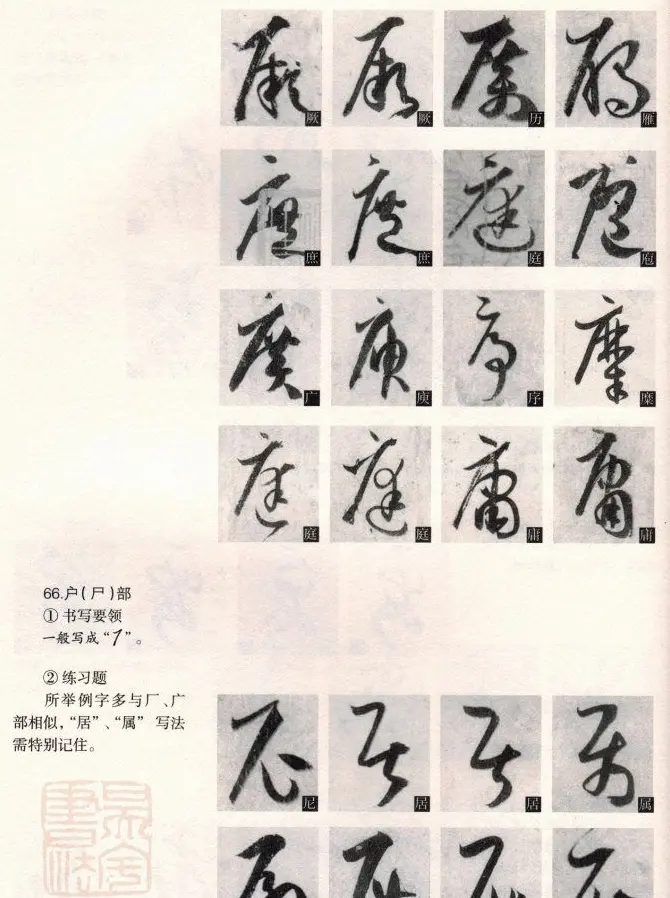 厥 厥 历 雁
庶 庶 庭 庖
广 庾 序 糜
庭 庭 庸 庸
66.户(尸)部
① 书写要领
一般写成“㇀”。
② 练习题
所举例字多与厂、广
部相似，“居”、“属” 写法
需特别记住。
尼 居 居 属